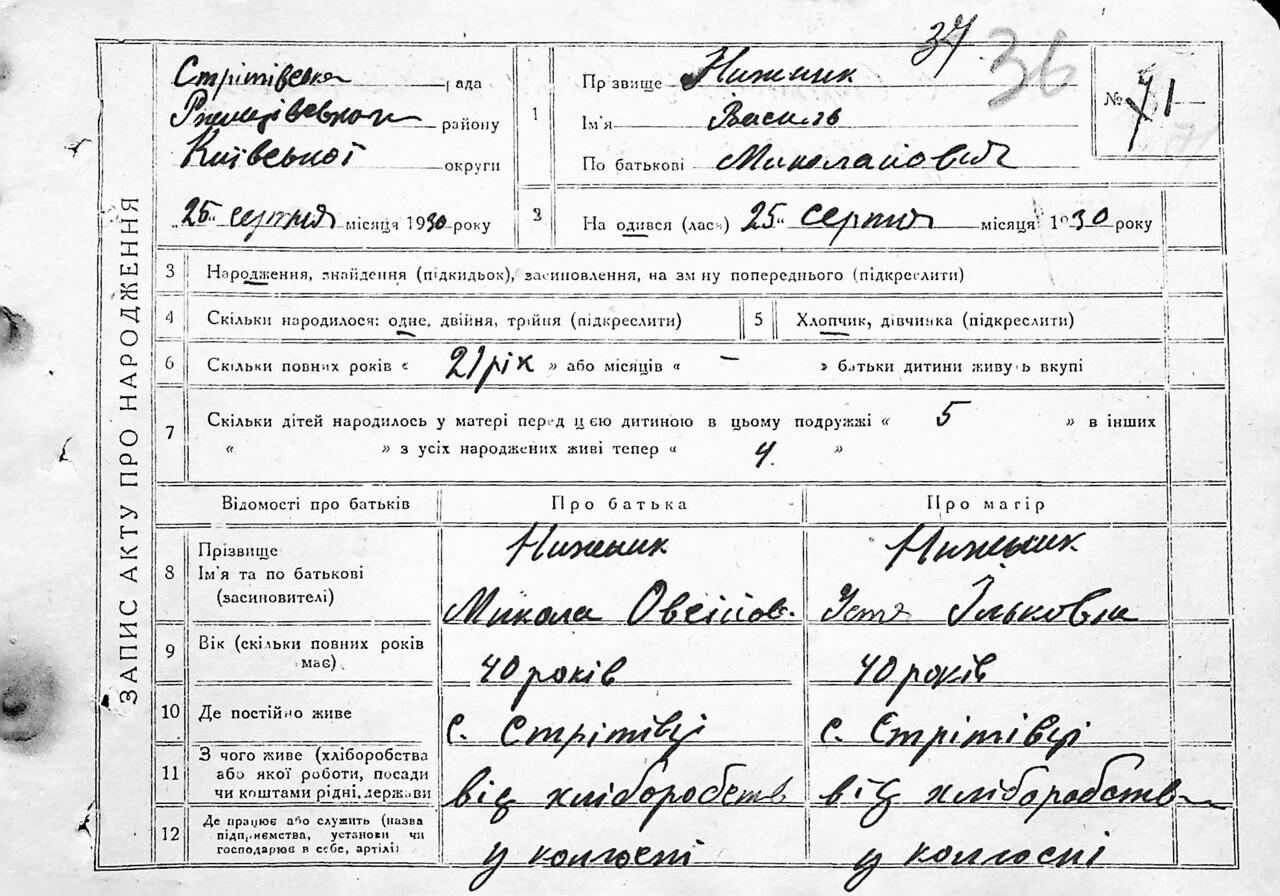 37 36
Стрітівська рада
району
Київської округи
„25“ серпня місяця 1930 року
1
Пр звище Нижник
Ім'я Василь
По батькові Миколайович
№ 71
2
На одився (лася) „25“ серпня місяця 1930 року
ЗАПИС АКТУ ПРО НАРОДЖЕННЯ
3 Народження, знайдення (підкидьок), засиновлення, на зм ну попереднього (підкреслити)
4 Скільки народилося: одне, двійня, трійня (підкреслити) 5 Хлопчик, дівчинка (підкреслити)
6 Скільки повних років « 21 рік » або місяців « – » батьки дитини живуть вкупі
7 Скільки дітей народилось у матері перед цією дитиною в цьому подружжі « 5 » в інших
« » з усіх народжених живі тепер « 4. »
Відомості про батьків Про батька Про матір
8 Прізвище Нижник Нижник
Ім'я та по батькові
(засиновителі) Микола Овсійов. Устя Ільковна
9 Вік (скільки повних років
має) 40 років 40 років
10 Де постійно живе с. Стрітівці с. Стрітівці
11 З чого живе (хліборобства
або якої роботи, посади
чи коштами рідні, держави від хліборобств від хліборобства
12 Де працює або служить (назва
підприємства, установи чи
господарює в себе, артілі) у колгоспі у колгоспі